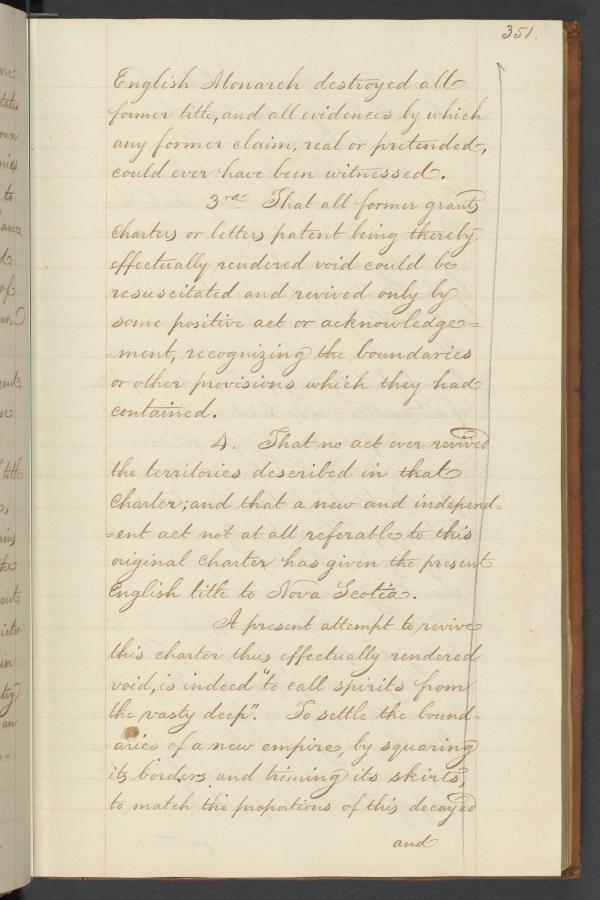 351.
English Monarch destroyed all
former title, and all evidences by which
any former claim, real or pretended,
could ever have been witnessed.
3rd That all former grants
charters or letters patent being thereby
effectually rendered void could be
resuscitated and revived only by
some positive act or acknowledge=
=ment, recognizing the boundaries
or other provisions which they had
contained.
4. That no act ever revived
the territories described in that
Charter; and that a new and independ=
=ent act not at all referable to this
original Charter has given the present
English title to Nova Scotia.
A present attempt to revive
this charter thus effectually rendered
void, is indeed "to call spirits from
the vasty deep". To settle the bound=
=aries of a new empire, by squaring
its borders and triming its skirts,
to match the proportions of this decayed
and